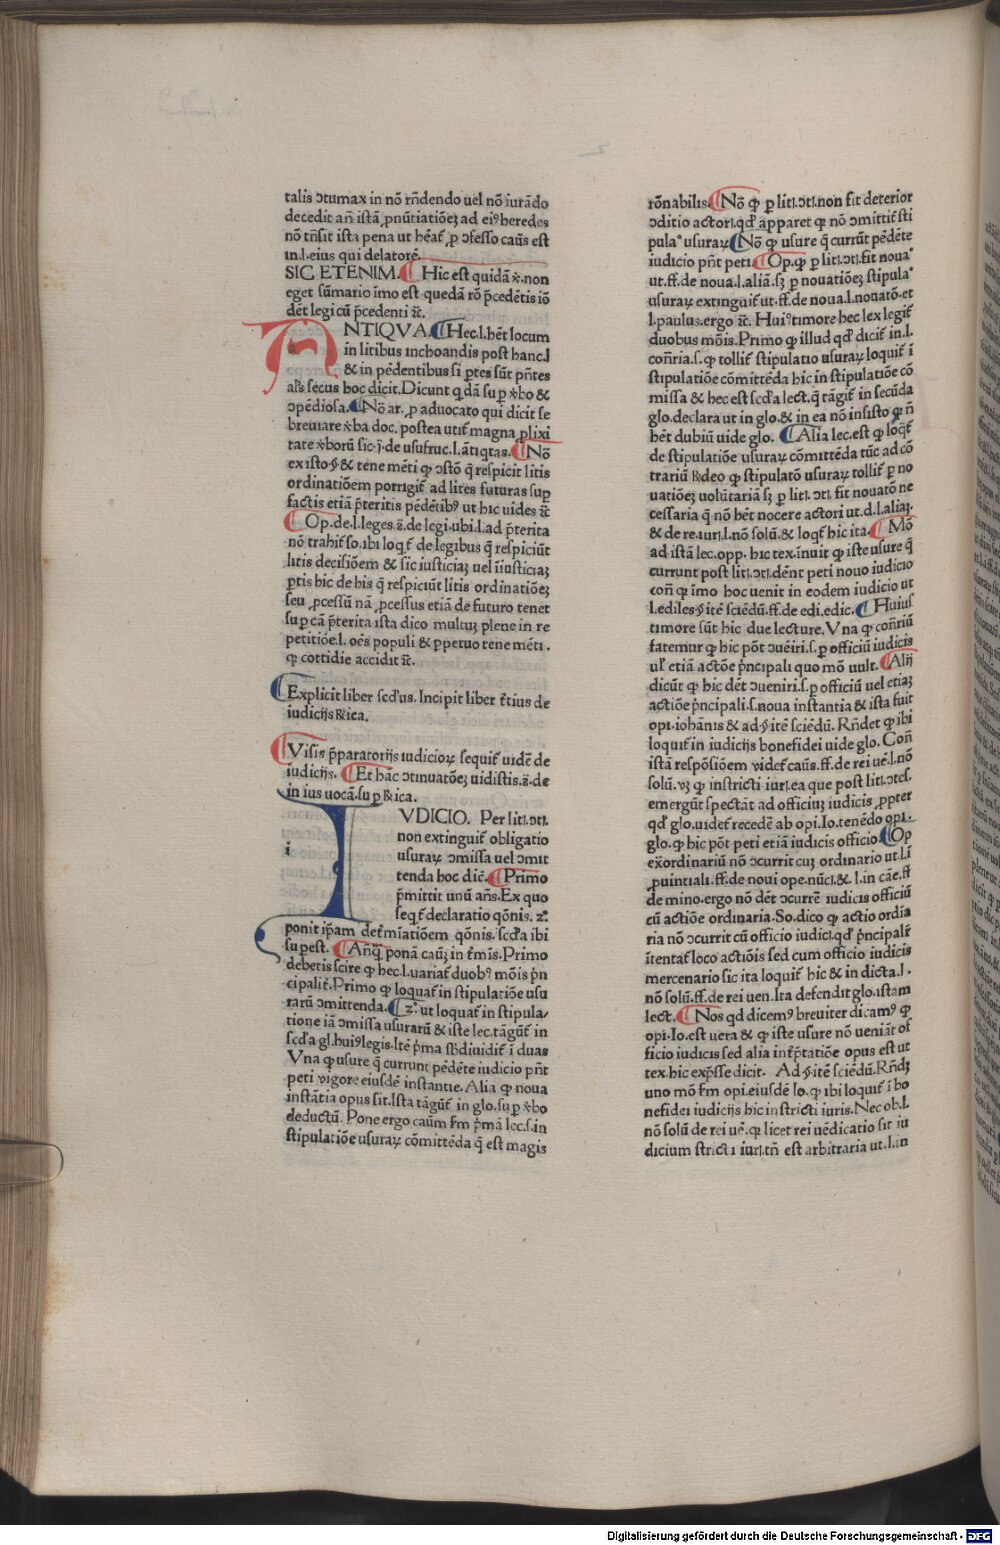 talis ɔtumax in nō rn̄dendo uel nō iurādo
decedit an̄ istā ꝓnūtiatiōeꝫ ad eiꝰ heredes
nō trn̄sit ista pena ut hēat᷑ ꝓ ɔfesso caūs est
in.l.eius qui delatorē.
SIC ETENIM. ¶ Hic est quidā ꝟ.non
eget sūmario īmo est quedā rō p̄cedētis iō
dēt legi cū p̄cedenti ⁊c̄.
ANTIQVA. ¶ Hec.l.hēt locum
in litibus inchoandis post hanc.l
& in pēdentibus si ptes sūt pn̄tes
al's secus hoc dicit. Dicunt qdā suꝑ ꝟbo &
ɔpēdiosa. ¶ Nō ar.ꝓ aduocato qui dicit se
breuiare ꝟba doc. postea utit᷑ magna plixi
tate ꝟborū sic.j.de usufruc.l.ātiqtas. ¶ Nō
ex isto.§.& tene mēti ꝙ ɔstō q̄ respicit litis
ordinatiōem porrigit᷑ ad lites futuras suꝑ
factis etiā p̄teritis pēdētibꝰ ut hic uides ⁊c̄
¶ Op.de.l.leges.ē.de legi.ubi.l.ad p̄terita
nō trahit᷑ so.ibi loqt᷑ de legibus q̄ respiciūt
litis decisiōem & sic iusticiaꝫ uel īiusticiaꝫ
ptis hic de his q̄ respiciūt litis ordinatiōeꝫ
seu ꝓcessū nā ꝓcessus etiā de futuro tenet
suꝑ cā p̄terita ista dico multuꝫ plene in re
petitiōe.l.oēs populi & ꝑpetuo tene mēti.
ꝙ cottidie accidit ⁊c̄.
¶ Explicit liber scd'us. Incipit liber t̄tius de
iudicijs R̄ica.
¶ Visis p̄paratorijs iudicioꝝ sequit᷑ uidē de
iudicijs. ¶ Et hāc ɔtinuatōeꝫ uidistis.ē.de
in ius uocā.suꝑ R̄ica.
IVDICIO. Per liti.ɔti.
non extinguit᷑ obligatio
usuraꝝ ɔmissa uel ɔmit
tenda hoc diē. ¶ Primo
p̄mittit unū an̄s. Ex quo
seqt᷑ declaratio qōnis. 2°.
ponit ip̄am det̄miatiōem qōnis. scd'a ibi
suꝑest. ¶ An̄q̄ ponā cauꝫ in t̄mīs. Primo
debetis scire ꝙ hec.l.uariat᷑ duobꝰ mōis p̄n
cipalit̄. Primo ꝙ loquat᷑ in stipulatiōe usu
rarū ɔmittenda. ¶ 2°. ut loquat᷑ in stipula⸗
tione iā ɔmissa usurarū & iste lec. tāgūt᷑ in
scd'a gl.huiꝰ legis. Itē p̄ma sb̄diuidit᷑ ī duas
Vna ꝙ usure q̄ currunt pēdēte iudicio pn̄t
peti vigore eiusdē instantie. Alia ꝙ noua
instātia opus sit. Ista tāgūt᷑ in glo.suꝑ ꝟbo
deductū. Pone ergo caūm s̄m p̄mā lec.s.in
stipulatiōe usuraꝝ cōmittēda q̄ est magis
rōnabilis. ¶ Nō ꝙ ꝑ liti.ɔti.non fit deterior
ɔditio actori.qd' apparet ꝙ nō ɔmittit᷑ sti
pula° usuraꝝ. ¶ Nō ꝙ usure q̄ currūt pēdēte
iudicio pn̄t peti. ¶ Op.ꝙ ꝑ liti.ɔti.fit noua°
ut.ff.de noua.l.aliā.sꝫ ꝑ nouatiōeꝫ stipula°
usuraꝝ extinguit᷑ ut.ff.de noua.l.nouatō.et
l.paulus.ergo ⁊c̄. Huiꝰ timore hec lex legit᷑
duobus mōis. Primo ꝙ illud qd' dicit᷑ in.l.
con̄ria.s.ꝙ tollit᷑ stipulatio usuraꝝ loquit᷑ ī
stipulatiōe cōmittēda hic in stipulatiōe cō
missa & hec est scd'a lect. q̄ tāgit᷑ in secūda
glo.declara ut in glo.& in ea nō insisto ꝙ n̄
hēt dubiū uide glo. ¶ Alia lec.est ꝙ loqt᷑
de stipulatiōe usuraꝝ cōmittēda tūc ad cō
trariū R̄deo ꝙ stipulatō usuraꝝ tollit᷑ ꝑ no
uatiōeꝫ uolūtariā sꝫ ꝑ liti.ɔti.fit nouatō ne
cessaria q̄ nō hēt nocere actori ut.d.l.aliaꝫ.
& de re.iuri.l.nō solū.& loqt᷑ hic ita. ¶ Mō
ad istā lec.opp.hic tex.īnuit ꝙ iste usure q̄
currunt post liti.ɔti.dēnt peti nouo iudicio
con̄ ꝙ īmo hoc uenit in eodem iudicio ut
l.ediles.§.itē sciēdū.ff.de edi.edic. ¶ Huius
timore sūt hic due lecture. Vna ꝙ con̄riū
fatemur ꝙ hic pōt ɔuēiri.s.ꝑ officiū iudicis
ul' etiā actōe p̄ncipali quo mō uult. ¶ Alij
dicūt ꝙ hic dēt ɔueniri.s.ꝑ officiū uel etiaꝫ
actiōe p̄ncipali.s.noua instantia & ista fuit
opi.iohānis & ad.§.itē sciēdū. Rn̄det ꝙ ibi
loquit᷑ in iudicijs bonefidei uide glo. Con̄
istā respōsiōem videt᷑ caūs.ff.de rei uē.l.nō
solū.vꝫ ꝙ instricti iuri.ea que post liti.ɔtes.
emergūt spectāt ad officiuꝫ iudicis ꝓpter
qd' glo.uidet᷑ recedē ab opi.Io.tenēdo opi.
glo.ꝙ hic pōt peti etiā iudicis officio. ¶ Op
ex̄ordinariū nō ɔcurrit cuꝫ ordinario ut.l.ī
ꝓuintiali.ff.de noui ope.nūci.&.l.in cāe.ff
de mino.ergo nō dēt ɔcurrē iudicis officiū
cū actiōe ordinaria. So.dico ꝙ actio ordīa
ria nō ɔcurrit cū officio iudici.qd' p̄ncipalr̄
ītentat᷑ loco actiōis sed cum officio iudicis
mercenario sic ita loquit᷑ hic & in dicta.l.
nō solū.ff.de rei uen. Ita defendit glo.istam
lect. ¶ Nos qd dicemꝰ breuiter dicamꝰ ꝙ
opi.Io.est uera & ꝙ iste usure nō ueniāt of
ficio iudicis sed alia int̄p̄tatiōe opus est ut
tex.hic exp̄sse dicit. Ad.§.itē sciēdū. Rn̄dꝫ
uno mō s̄m opi.eiusdē Io.ꝙ ibi loquit᷑ ī bo
nefidei iudicijs hic instricti iuris. Nec ob.l.
nō solū de rei uē.ꝙ licet rei uēdicatio sit iu
dicium stricti iuri.tn̄ est arbitraria ut.l.in
Digitalisierung gefördert durch die Deutsche Forschungsgemeinschaft - DFG